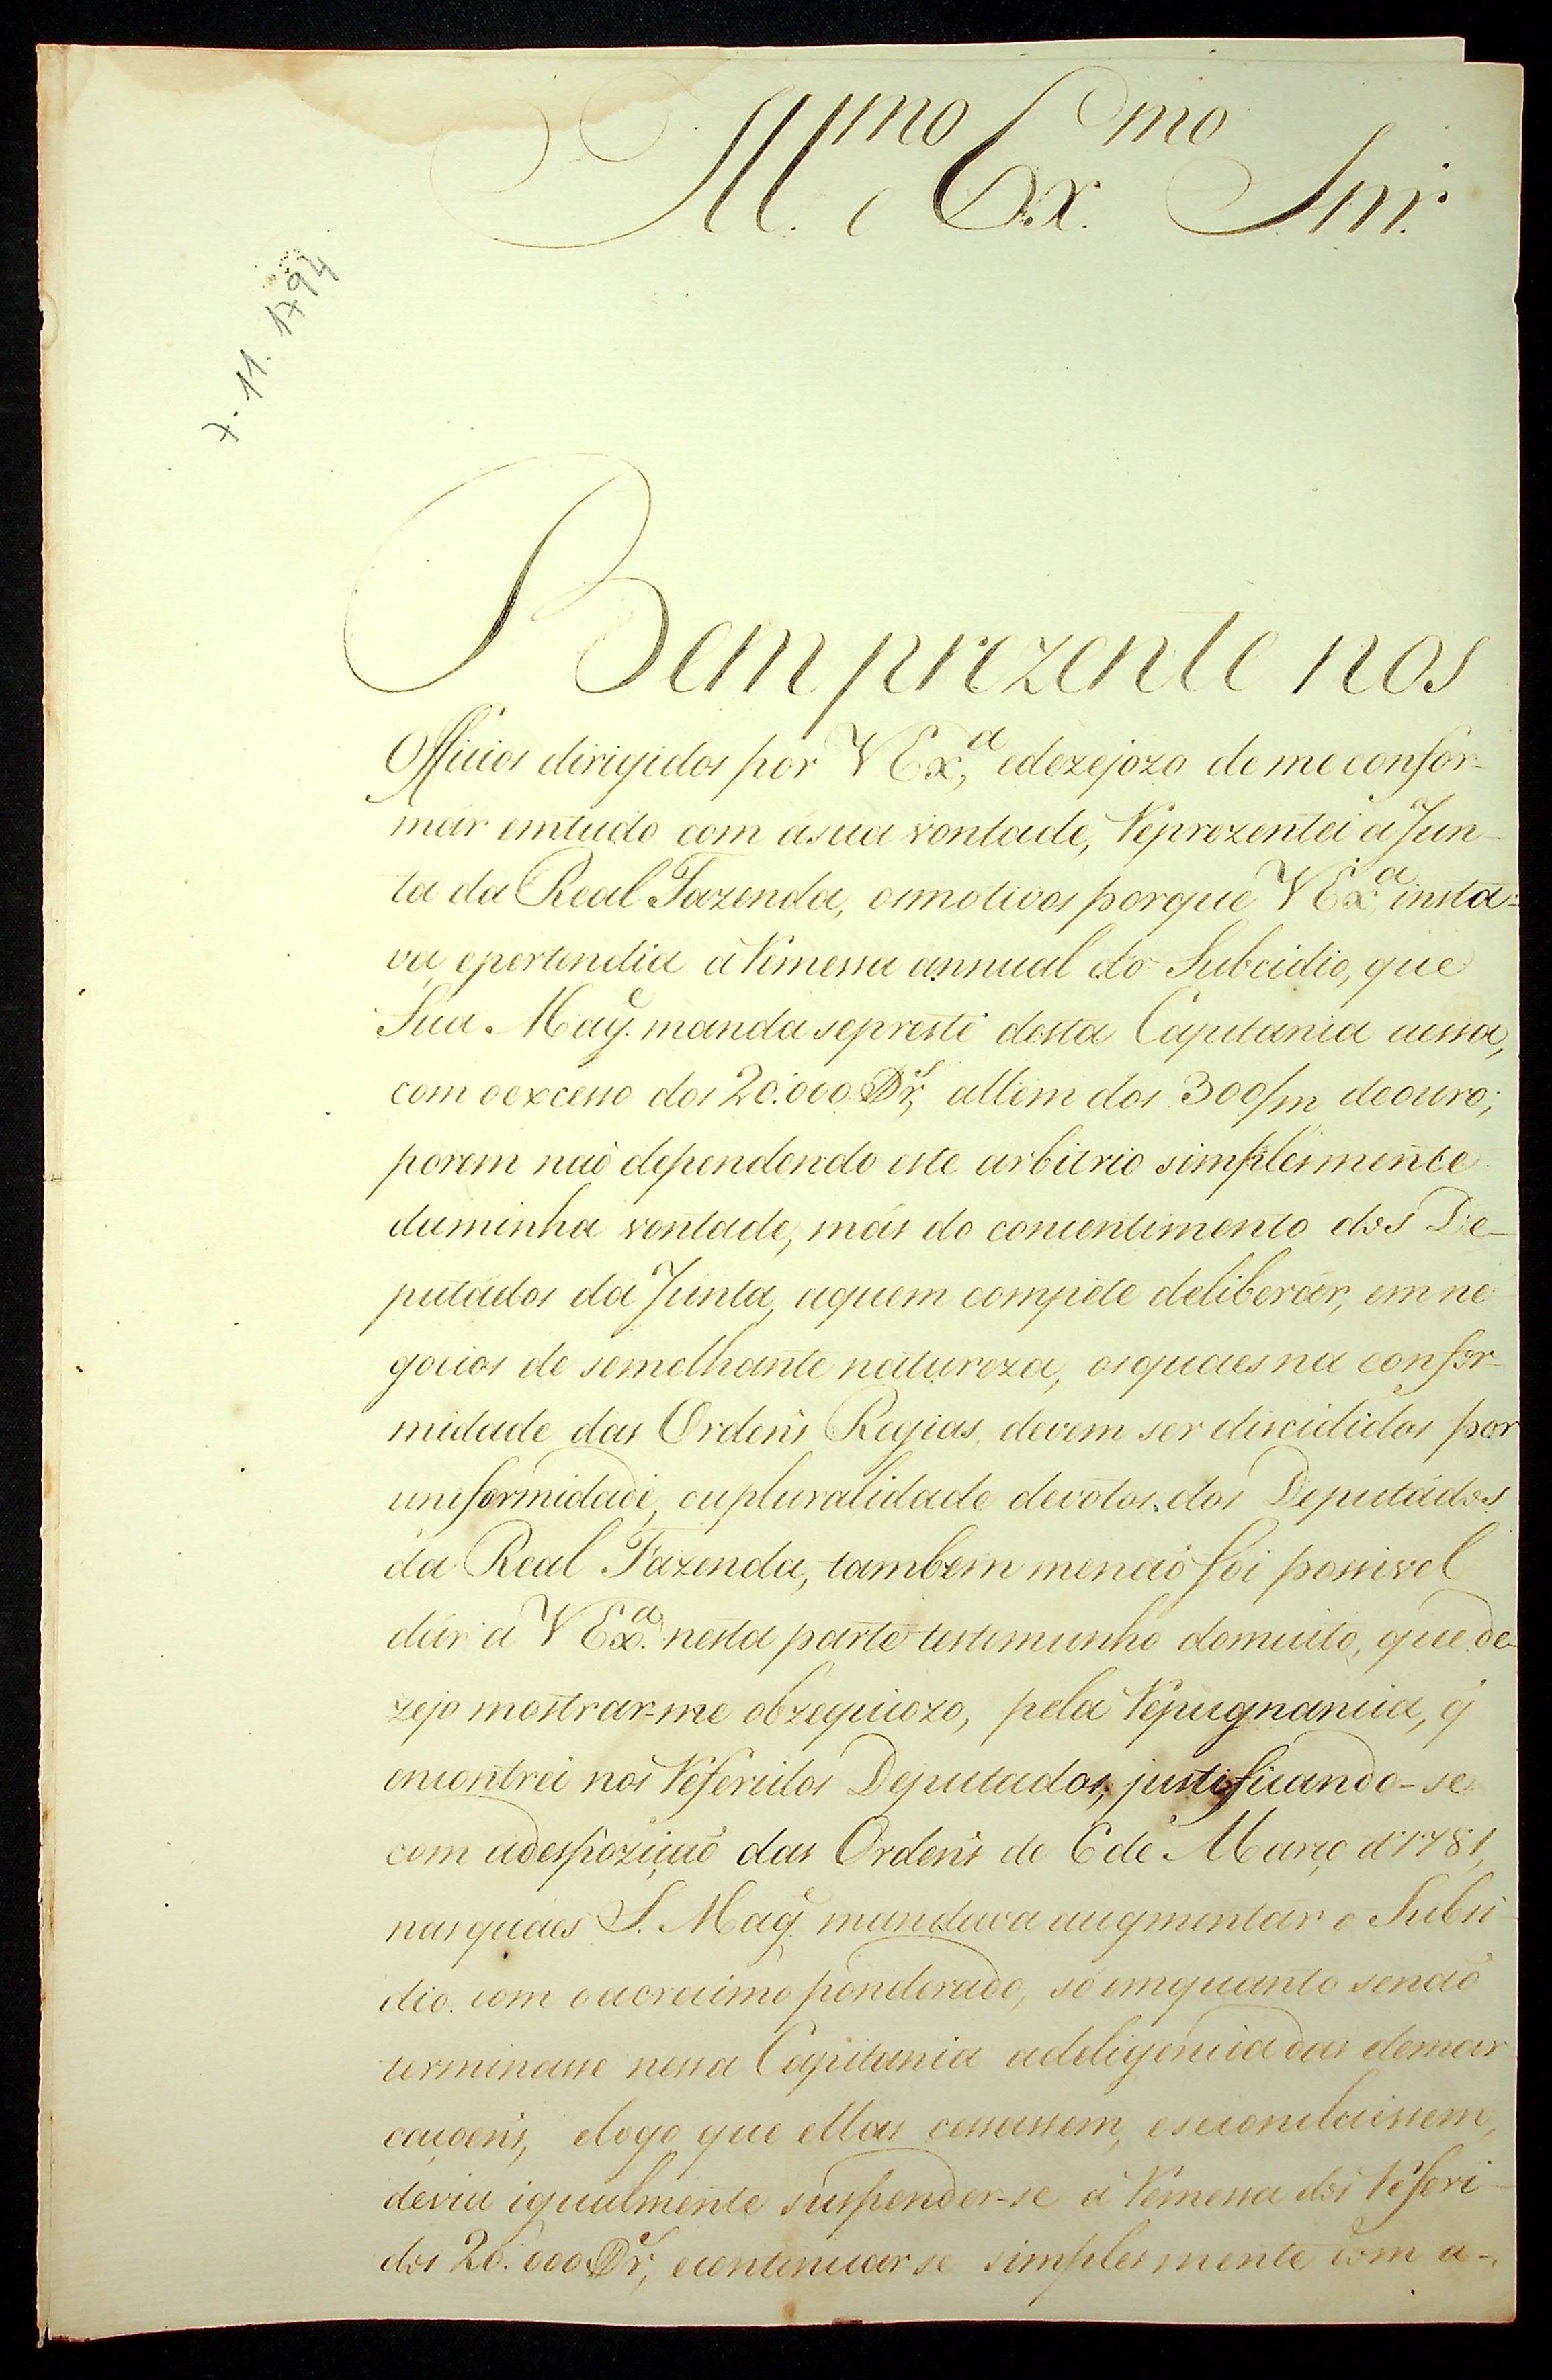 Ill.mo e Ex.mo Snr.
7.11.1794
Bem prezente nos
Officios dirigidos por V Ex.a, edezejozo de me confor-
már emtudo com ásua vontade, Reprezentei a Jun-
ta da Real Fazenda, osmotivos porque V Ex.a insta-
va, epertendia a Remessa annual do Subcidio, que
Sua Mag.e manda sepreste desta Capitania aessa,
com oexcesso dos 20.000 Dr.s, allem dos 300/m deouro;
porem naõ dependendo este arbitrio simplesmente
daminha vontade, más do consentimento dos De-
putádos da Junta, aquem compete deliberár, em ne
gocios de semelhante natureza, osquaes na confor-
midade das Ordens Regias, devem ser discididos por
uniformidade, oupluralidade devotos dos Deputádos
da Real Fazenda, tambem menaõ foi possivel
dár a V Ex.a nesta parte testemunho domuito, que de-
zejo mostrar-me obzequiozo, pela Repugnancia, q̃
encontrei nos Referidos Deputados, justificando-se
com adespoziçaõ das Ordens de 6 de Março d'1781,
nas quaes S. Mag.e mandava augmentar o Subsi-
dio com oacrecimo ponderado, só emquanto senaõ
terminasse nessa Capitania adeligencia das demar
caçoens, elogo que ellas cessassem, eseconcluissem,
devia igualmente suspender-se a Remessa dos Referi-
dos 20.000 Dr.s, econtinuarse simplesmente com a-